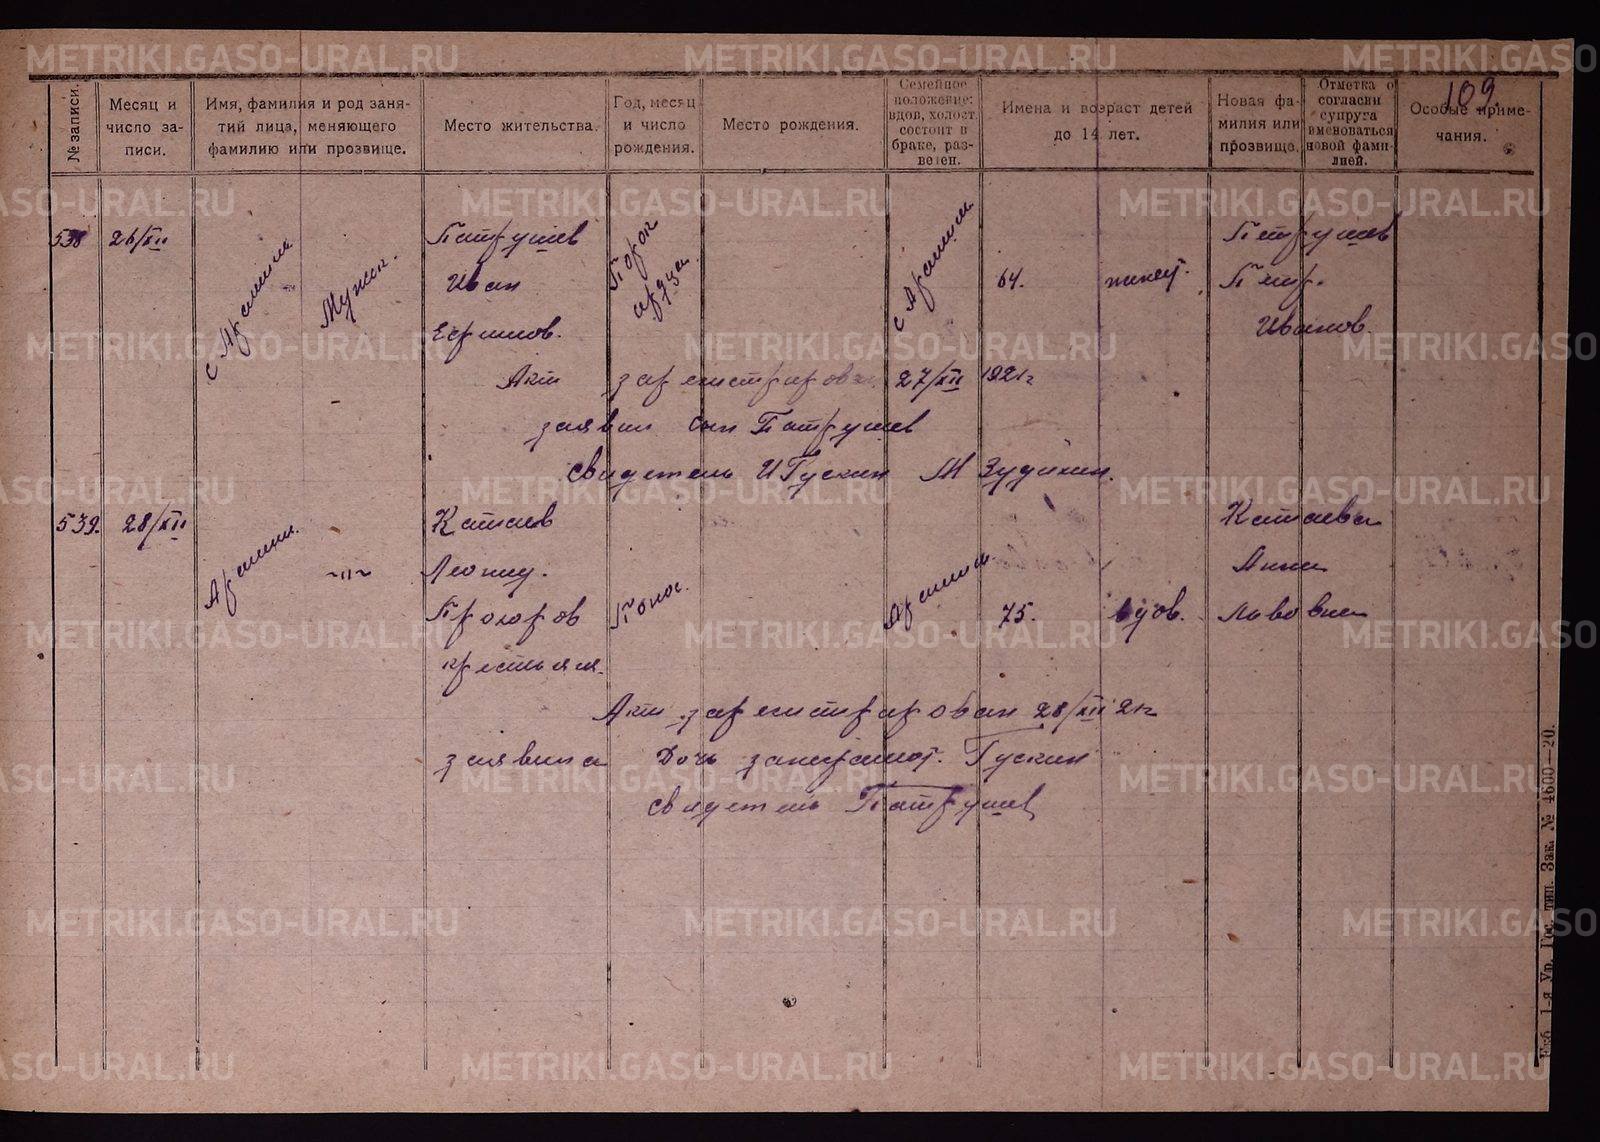 METRIKI.GASO-URAL.RU
109.
№ записи.
Месяц и число записи.
Имя, фамилия и род занятий лица, меняющего фамилию или прозвище.
Место жительства.
Год, месяц и число рождения.
Место рождения.
Семейное положение: вдов, холост, состоит в браке, разведен.
Имена и возраст детей до 14 лет.
Новая фамилия или прозвище.
Отметка о согласии супруга вменоваться новой фамилией.
Особые примечания.
538 26/XII
с Арамил.
Мужск.
Патрушев
Иван
Ефимов.
Порок сердца.
с Арамил.
64.
женат.
Патрушев
Петр.
Иванов.
Акт зарегистрирован 27/XII 1921г
заявил сын Патрушев
свидетель И Гускин М Зудихин.
539. 28/XII
Арамил.
~"~
Катаев
Леонид.
Прохоров
крестьян.
Понос.
Арамил.
75.
вдов.
Катаева
Анна
Львовна
Акт зарегистрирован 28/XII 21г
заявила Дочь за неграмот. Гускин
свидетель Патрушев
Екб. 1-я Ур. Гос. тип. Зак. № 4600—20.